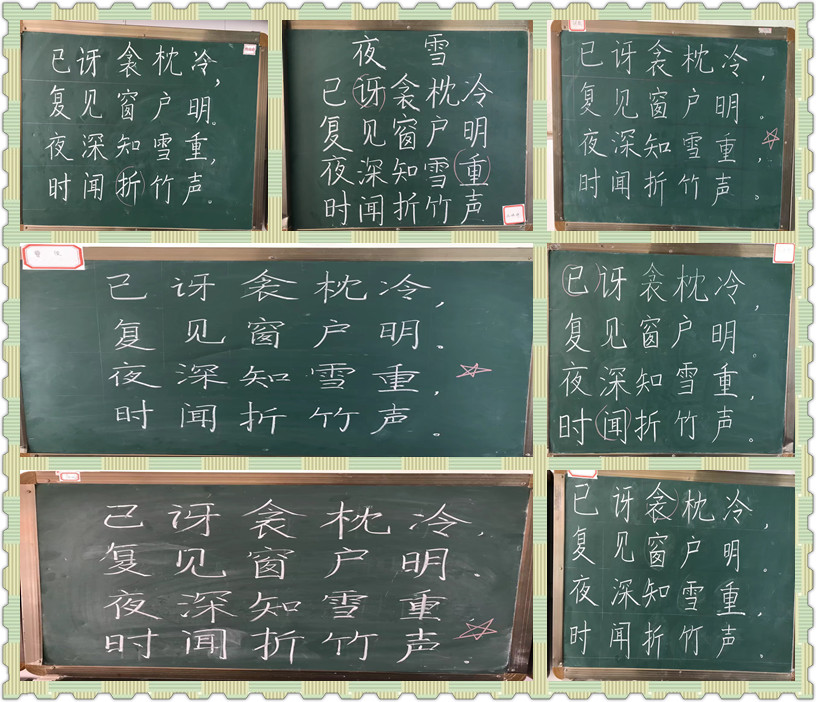 已讶衾枕冷，
复见窗户明。
夜深知雪重，
时闻折竹声。
夜雪
已讶衾枕冷
复见窗户明
夜深知雪重
时闻折竹声
已讶衾枕冷，
复见窗户明。
夜深知雪重，
时闻折竹声。
已讶衾枕冷，
复见窗户明。
夜深知雪重，
时闻折竹声。
已讶衾枕冷，
复见窗户明。
夜深知雪重，
时闻折竹声。
已讶衾枕冷，
复见窗户明。
夜深知雪重，
时闻折竹声。
已讶衾枕冷，
复见窗户明。
夜深知雪重，
时闻折竹声。